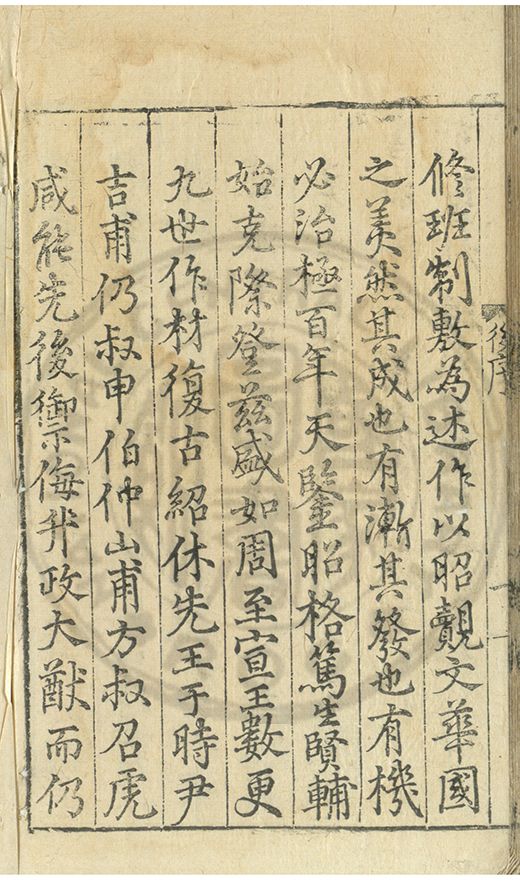 修班制敷為述作以昭觀文華國
之美然其成也有漸其發也有機
必治極百年天鑒昭格篤生賢輔
始克際登茲盛如周至宣王數更
九世作材復古紹休先王于時尹
吉甫仍叔申伯仲山甫方叔召虎
咸能先後禦侮升政大猷而仍
後序